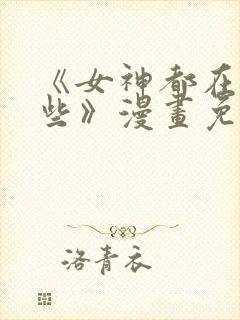 《女神都在
些》漫畫免
洛青衣